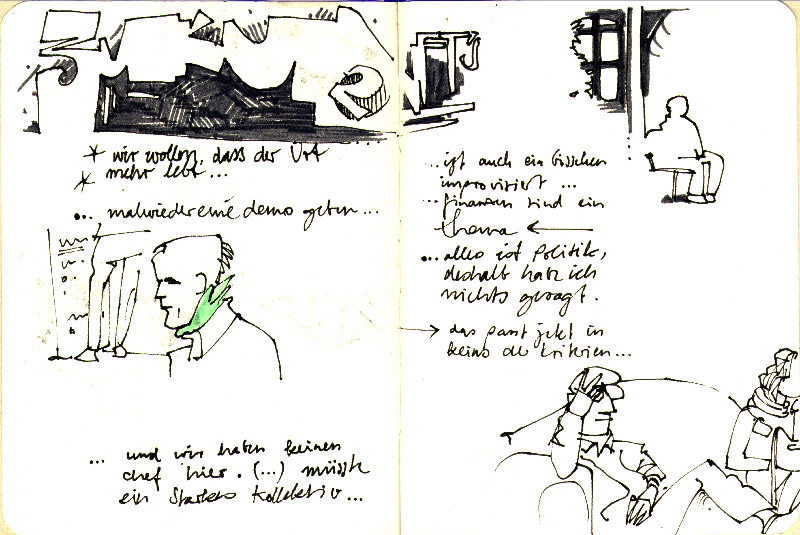 * wir wollen, dass der Ort
* mehr lebt...
... malwieder eine demo geben...
... und wir haben keinen
chef hier. (...) müsste
ein starkes Kollektiv...
...ist auch ein bisschen
improvisiert ...
... finanzen sind ein
thema ←
... alles ist Politik,
deshalb hab ich
nichts gesagt.
→ das passt jetzt in
keins der kriterien...